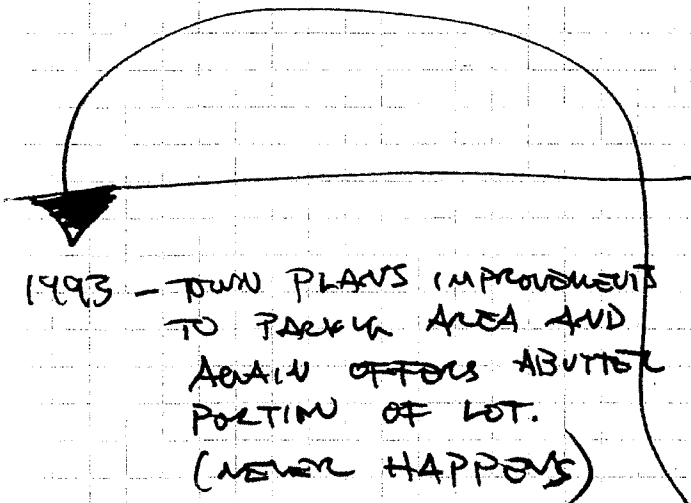 1993 – TOWN PLANS IMPROVEMENTS
TO PARKING AREA AND
AGAIN OFFERS ABUTTER
PORTION OF LOT.
(NEVER HAPPENS)